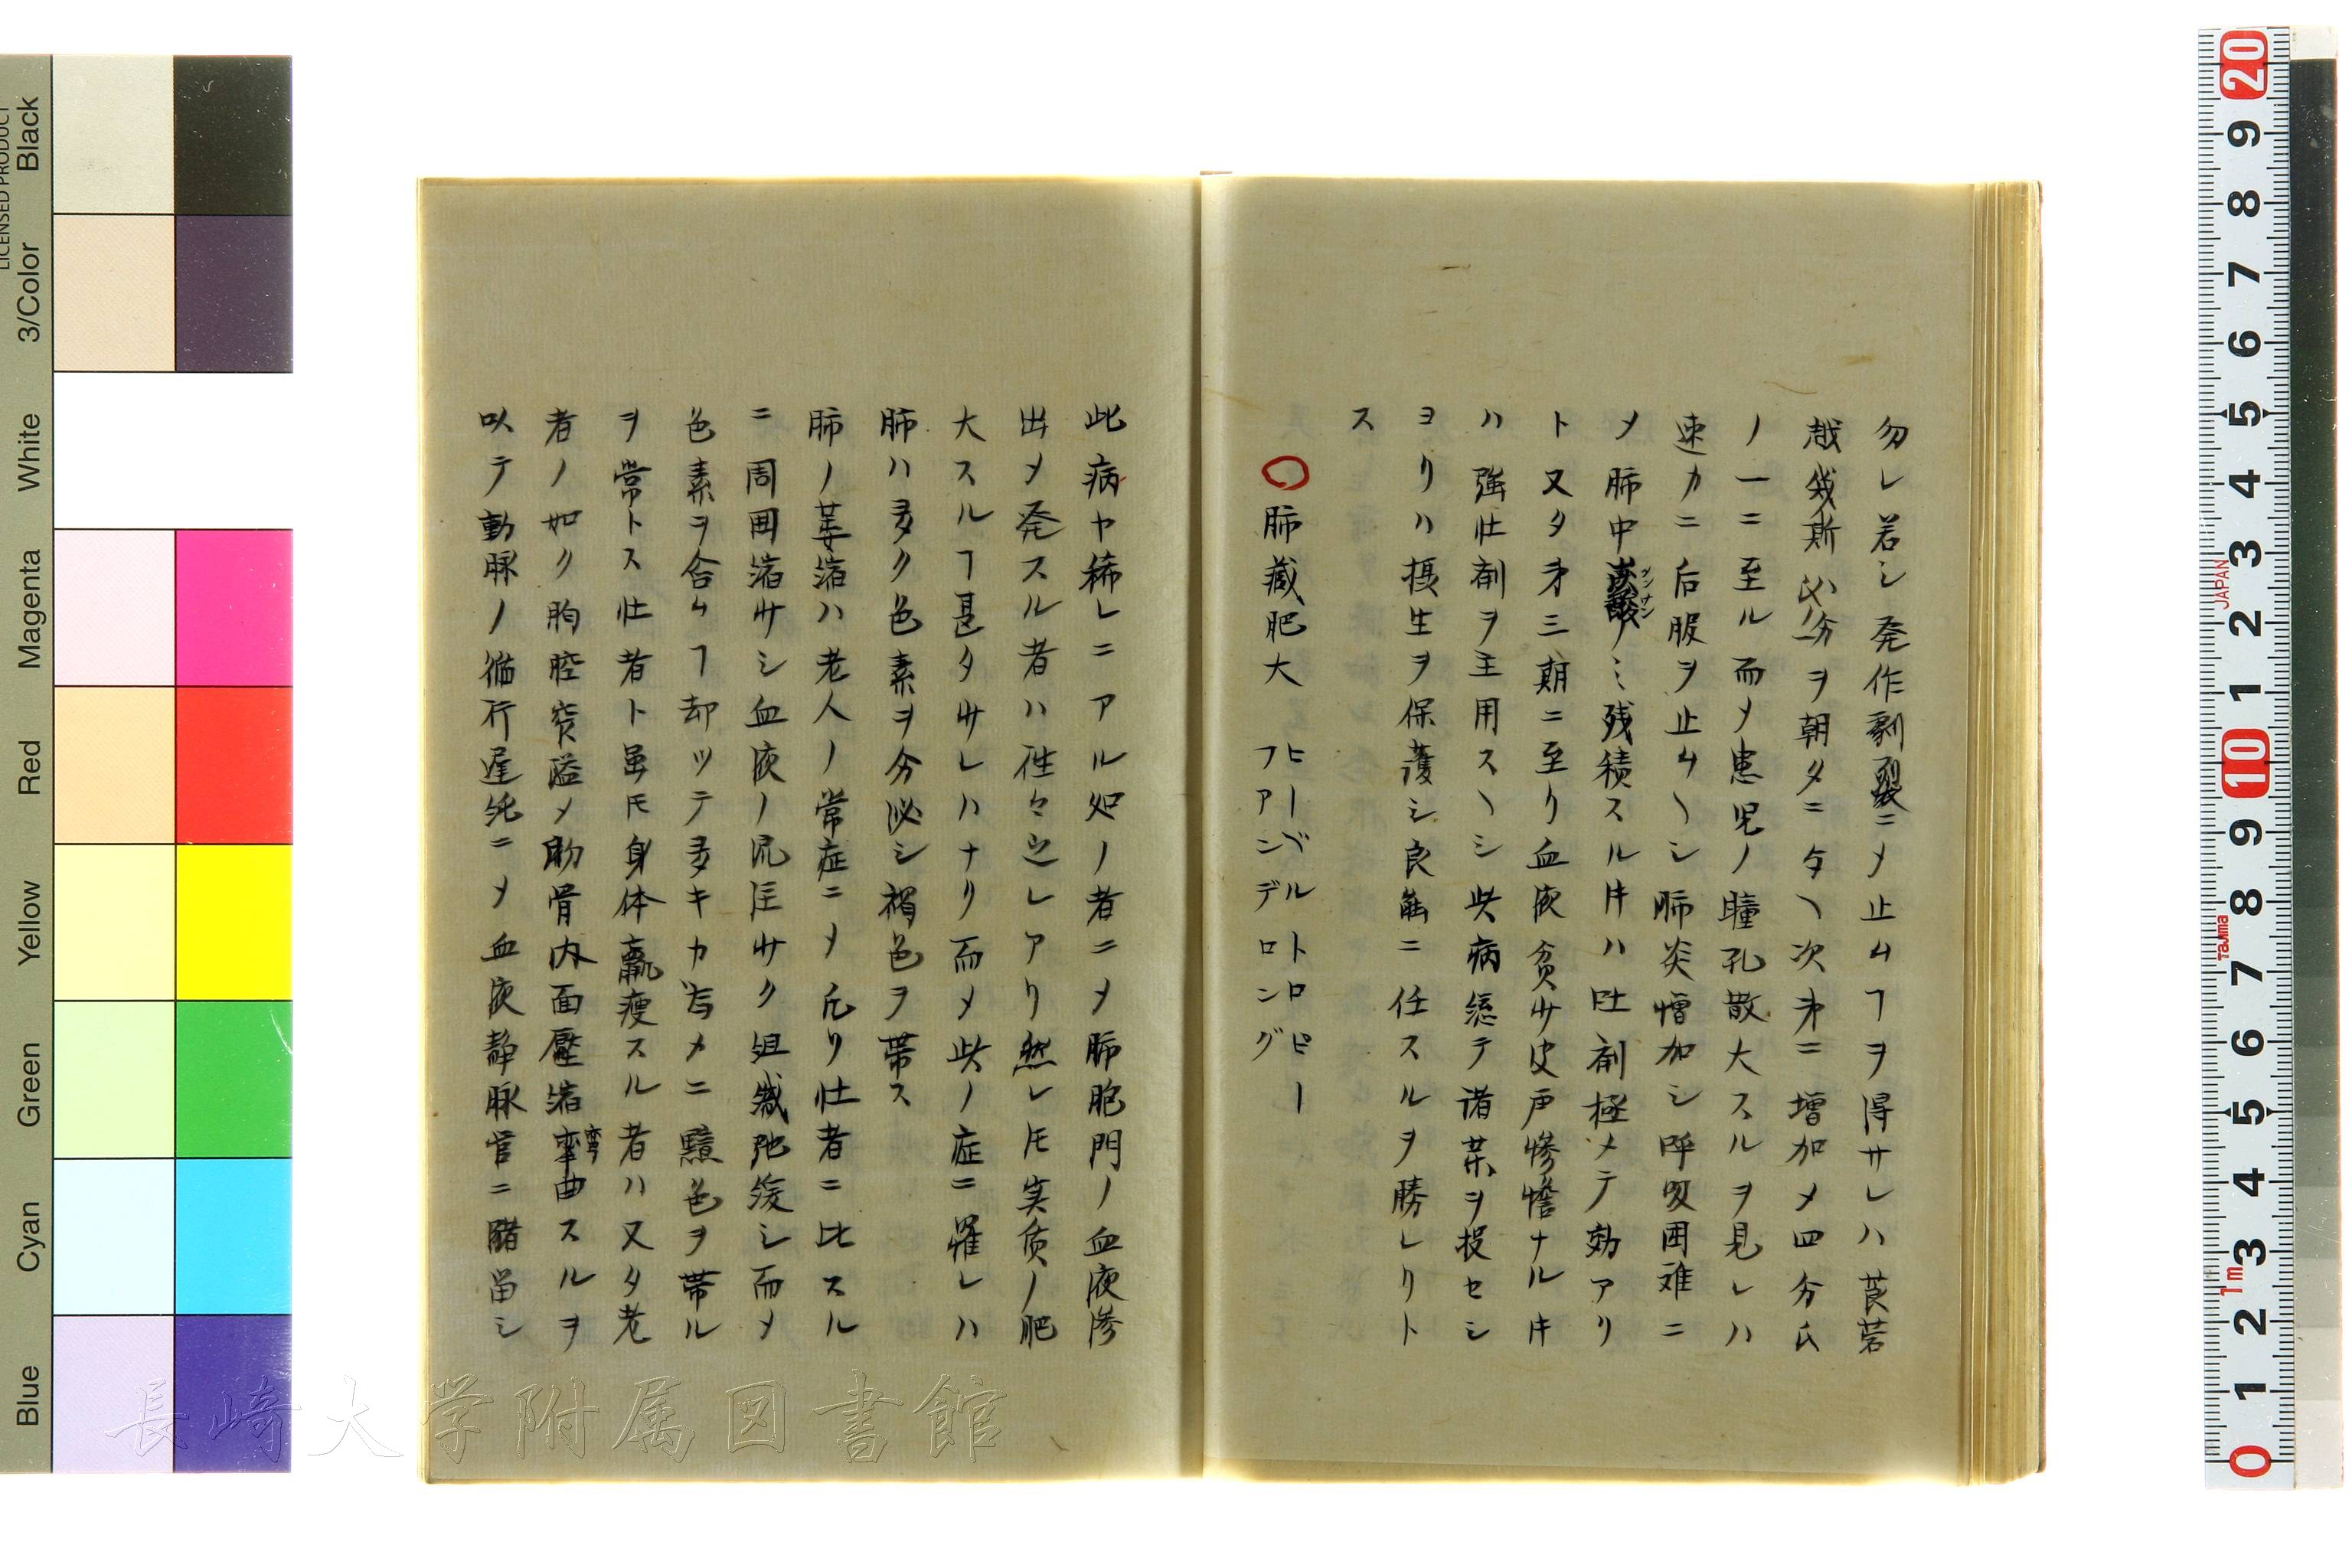 勿レ若シ発作劇烈ニメ止ムヿヲ得サレハ莨菪
越幾斯 分ヲ朝夕ニ与ヘ次第ニ増加メ四分氏
ノ一ニ至ル而メ患児ノ瞳孔散大スルヲ見レハ
速カニ后服ヲ止ムヘシ肺炎憎加シ呼吸困难ニ
メ肺中 残積スル𪜈ハ吐剤極メテ効アリ
ト又タ第三期ニ至リ血液貧サ皮声惨憺ナル𪜈
ハ強壮剤ヲ主用スヘシ此病総テ諸薬ヲ投セシ
ヨリハ摂生ヲ保護シ良能ニ任スルヲ勝レリト
ス
〇肺蔵肥大 ヒーベルトロピー
フアンデロング
此病ヤ稀レニアル処ノ者ニメ肺胞門ノ血液滲
出メ発スル者ハ往々之レアリ然レ𪜈実质ノ肥
大スルヿ甚タサレハナリ而メ此ノ症ニ罹レハ
肺ハ多ク色素ヲ分泌シ褐色ヲ帯ス
肺ノ萎縮ハ老人ノ常症ニメ凡リ壮者ニ比スル
ニ周囲縮サシ血液ノ流注サク組織弛緩シ而メ
色素ヲ含ムヿ却ツテ多キカ為メニ黯色ヲ帯ル
ヲ常トス壮者ト虽𪜈身体羸痩スル者ハ又タ老
者ノ如ク胸腔窄隘メ肋骨内面壓縮彎曲スルヲ
以テ動脈ノ循行遅鈍ニメ血液静脈官ニ瀦畄シ
Black
3/Color
White
Magenta
Red
Yellow
Green
Cyan
Blue
LICENSED PRODUCT
長崎大学附属図書館
20 9 8 7 6 5 4 3 2 1 10 9 8 7 6 5 4 3 2 1 0
JAPAN
Tajima
1m